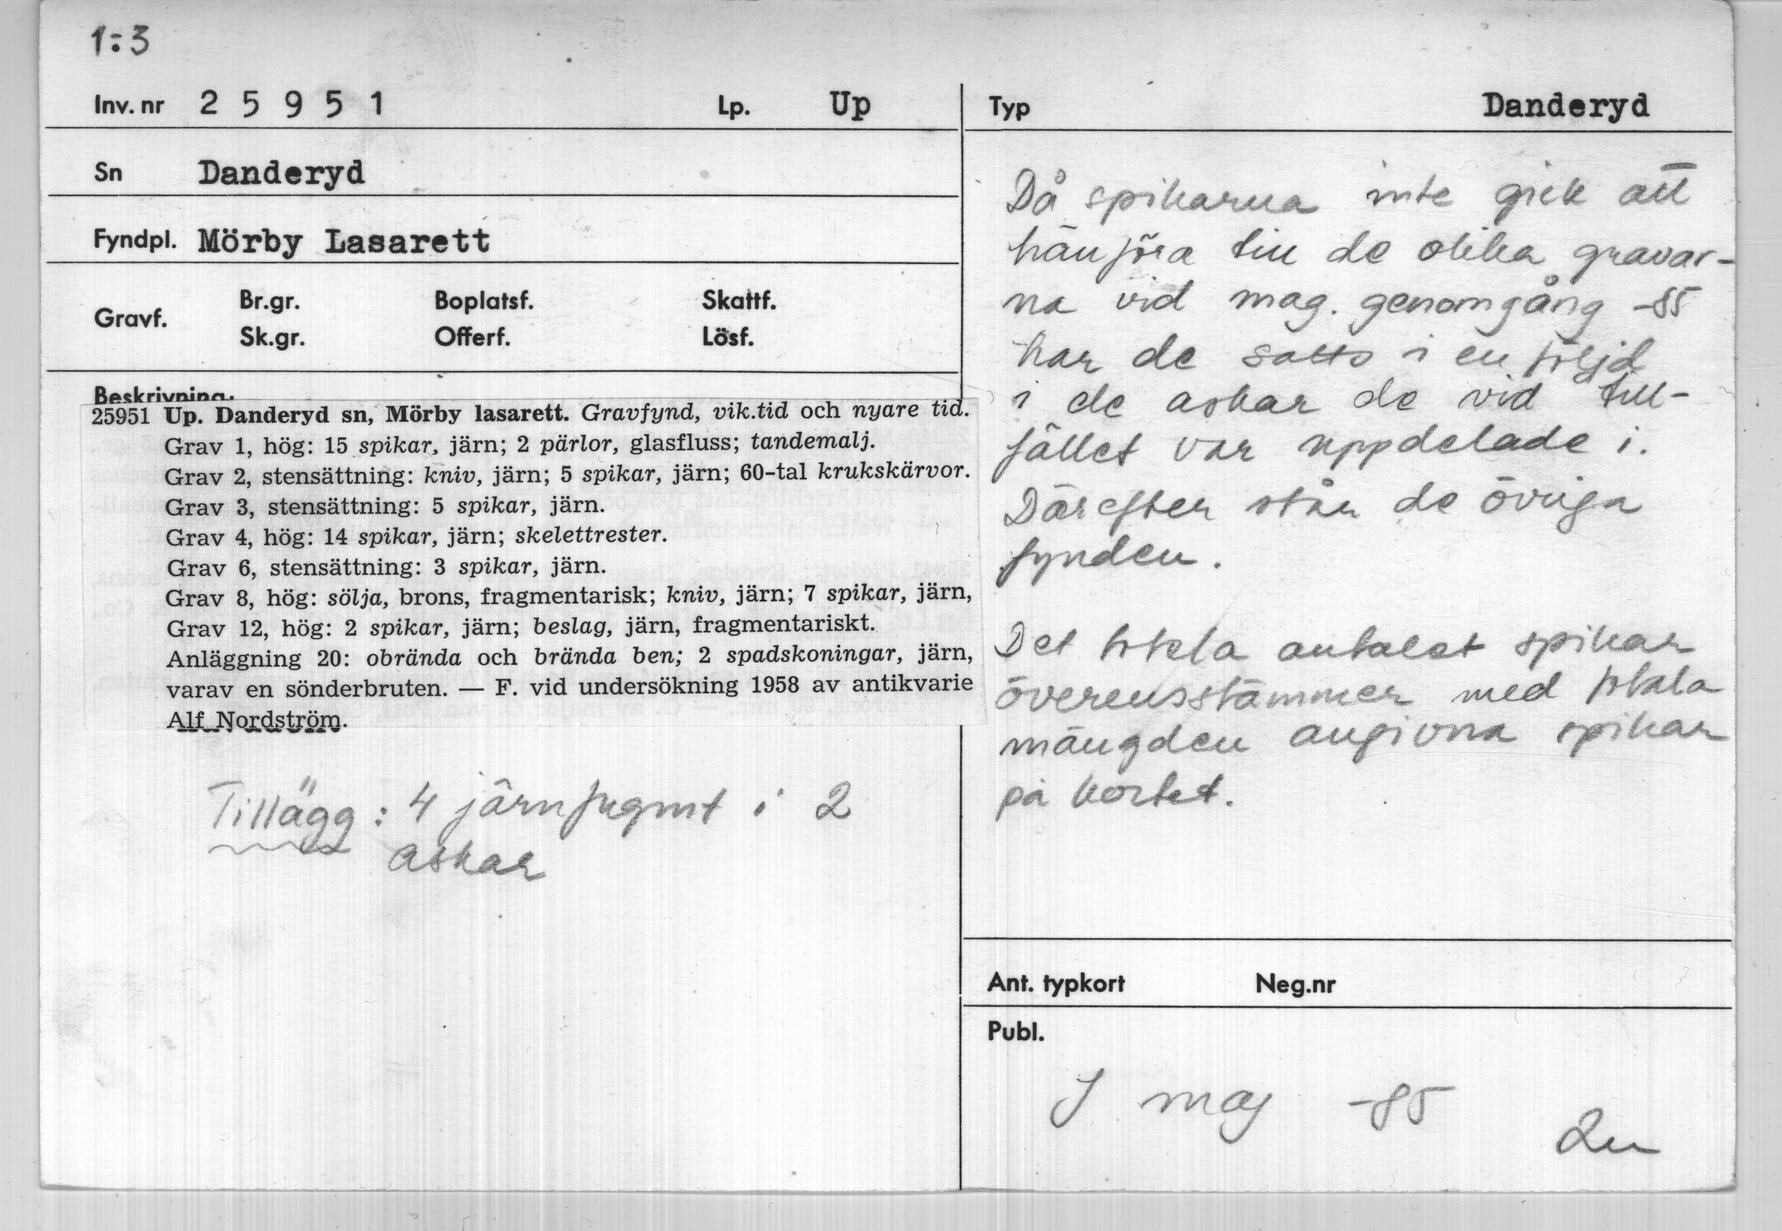 1:3
Inv. nr 2 5 9 5 1 Lp. Up
Sn Danderyd
Fyndpl. Mörby Lasarett
Gravf. Br.gr. Boplatsf. Skattf.
Sk.gr. Offerf. Lösf.
Beskrivning:
25951 Up. Danderyd sn, Mörby lasarett. Gravfynd, vik.tid och nyare tid.
Grav 1, hög: 15 spikar, järn; 2 pärlor, glasfluss; tandemalj.
Grav 2, stensättning: kniv, järn; 5 spikar, järn; 60-tal krukskärvor.
Grav 3, stensättning: 5 spikar, järn.
Grav 4, hög: 14 spikar, järn; skelettrester.
Grav 6, stensättning: 3 spikar, järn.
Grav 8, hög: sölja, brons, fragmentarisk; kniv, järn; 7 spikar, järn,
Grav 12, hög: 2 spikar, järn; beslag, järn, fragmentariskt.
Anläggning 20: obrända och brända ben; 2 spadskoningar, järn,
varav en sönderbruten. — F. vid undersökning 1958 av antikvarie
Alf Nordström.
Tillägg: 4 järnfragmt i 2
askar
Typ Danderyd
Då spikarna inte gick att
hänföra till de olika gravar-
na vid mag. genomgång -85
har de satts i en följd
i de askar de vid till-
fället var uppdelade i.
Därefter står de övriga
fynden.
Det totala antalet spikar
överensstämmer med totala
mängden angivna spikar
på kortet.
Ant. typkort Neg.nr
Publ.
J maj -85